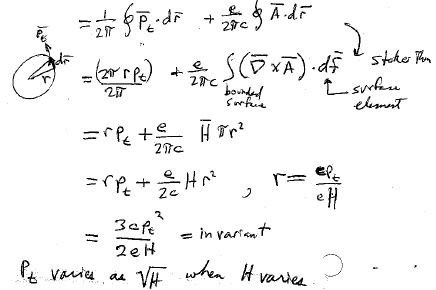 = 1/2π ∮ P̄_t · dr̄ + e/2πc ∮ Ā · dr̄
P̄_t dr̄ r
= (2π r p_t)/2π + e/2πc ∫ (∇̄ × Ā) · df̄ stokes Thm
bounded surface
surface element
= r p_t + e/2πc H̄ π r²
= r p_t + e/2c H r² , r = cp_t/eH
= 3cp_t²/2eH = invariant
P_t varies as √H when H varies